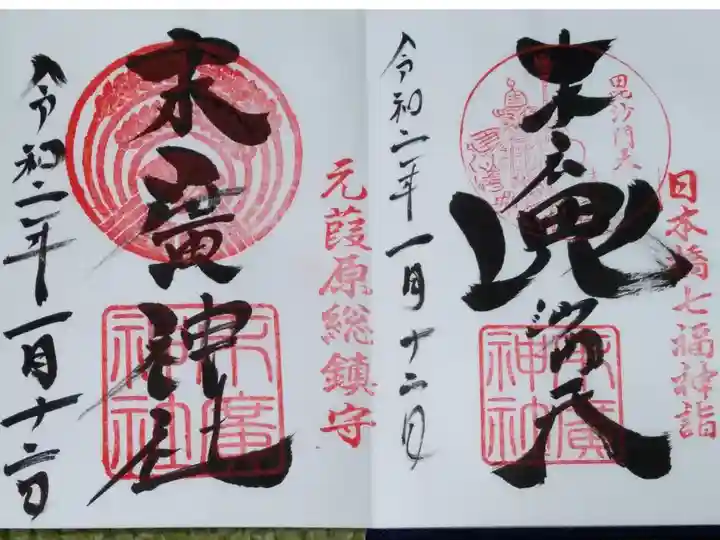 日本橋七福神詣
毘沙門天
末廣神社
令和二年一月十二日
元葭原総鎮守
末廣神社
末廣神社
令和二年一月十二日